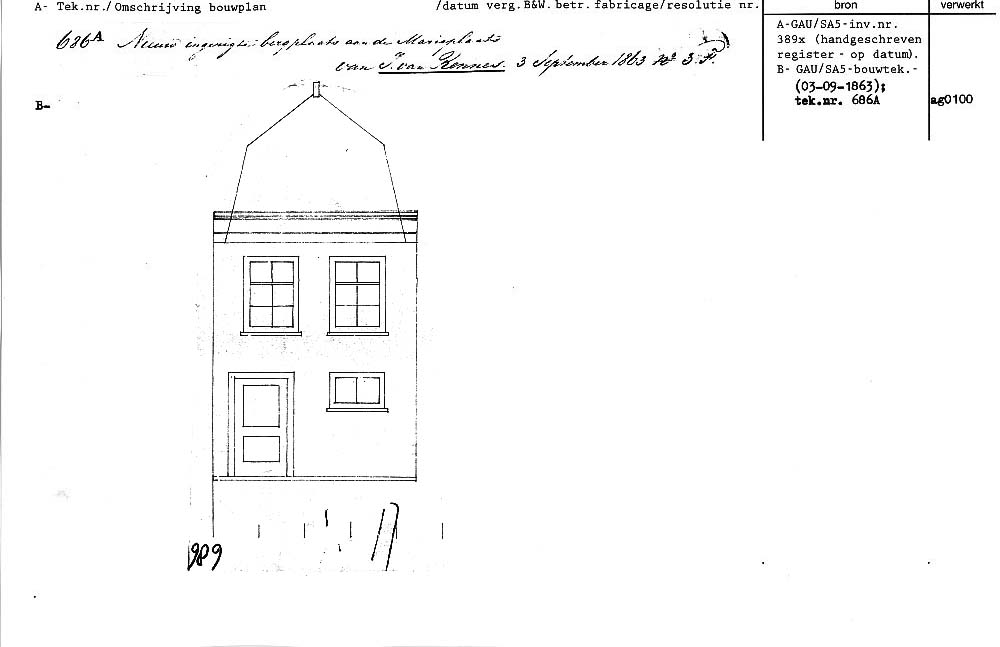 A- Tek.nr./Omschrijving bouwplan /datum verg.B&W.betr.fabricage/resolutie nr. bron verwerkt
686A Nieuw ingerigte bergplaats aan de Marieplaats
van J. van Kennes. 3 September 1863 No 3
A-GAU/SA5-inv.nr.
389x (handgeschreven
register - op datum).
B- GAU/SA5-bouwtek.-
(03-09-1863);
tek.nr. 686A
ag0100
B-
989
17